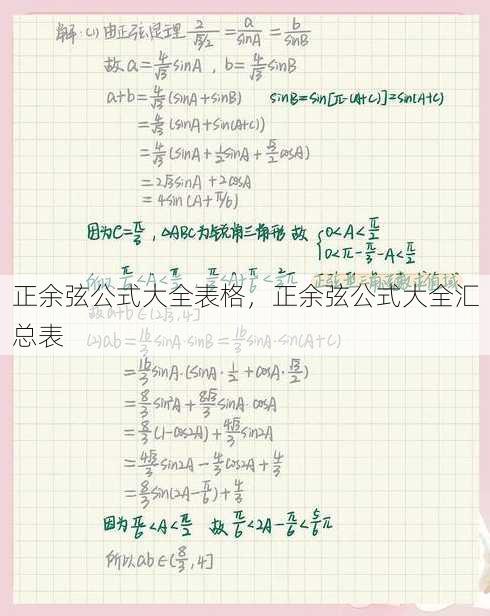 解:(1)由正弦定理 2/(√3/2) = a/sinA = b/sinB
故 a=4/√3 sinA , b=4/√3 sinB
a+b=4/√3 (sinA+sinB) sinB=sin[π-(A+C)]=sin(A+C)
=4/√3 (sinA+sin(A+C))
=4/√3 (sinA+1/2 sinA+√3/2 cosA)
=2√3 sinA +2cosA
=4sin(A+π/6)
因为C=π/3 , △ABC为锐角三角形 故 {0<A<π/2
0<π-π/3-A<π/2
所以 π/6<A<π/2 π/3<A+π/6<2/3π
正余弦公式大全表格，正余弦公式大全汇
故a+b∈(2√3,4]
总表
(2)ab=16/3 sinA·sinB=16/3 sinA·sin(A+C)
=16/3 sinA·(sinA·1/2+cosA·√3/2)
=8/3 sin²A+8√3/3 sinA·cosA
=8/3 (1-cos2A)+4√3/3 sin2A
=4√3/3 sin2A-4/3 cos2A+4/3
=8/3 sin(2A-π/6)+4/3
因为π/6<A<π/2 故 π/6<2A-π/6<5/6π
所以ab∈(8/3,4]